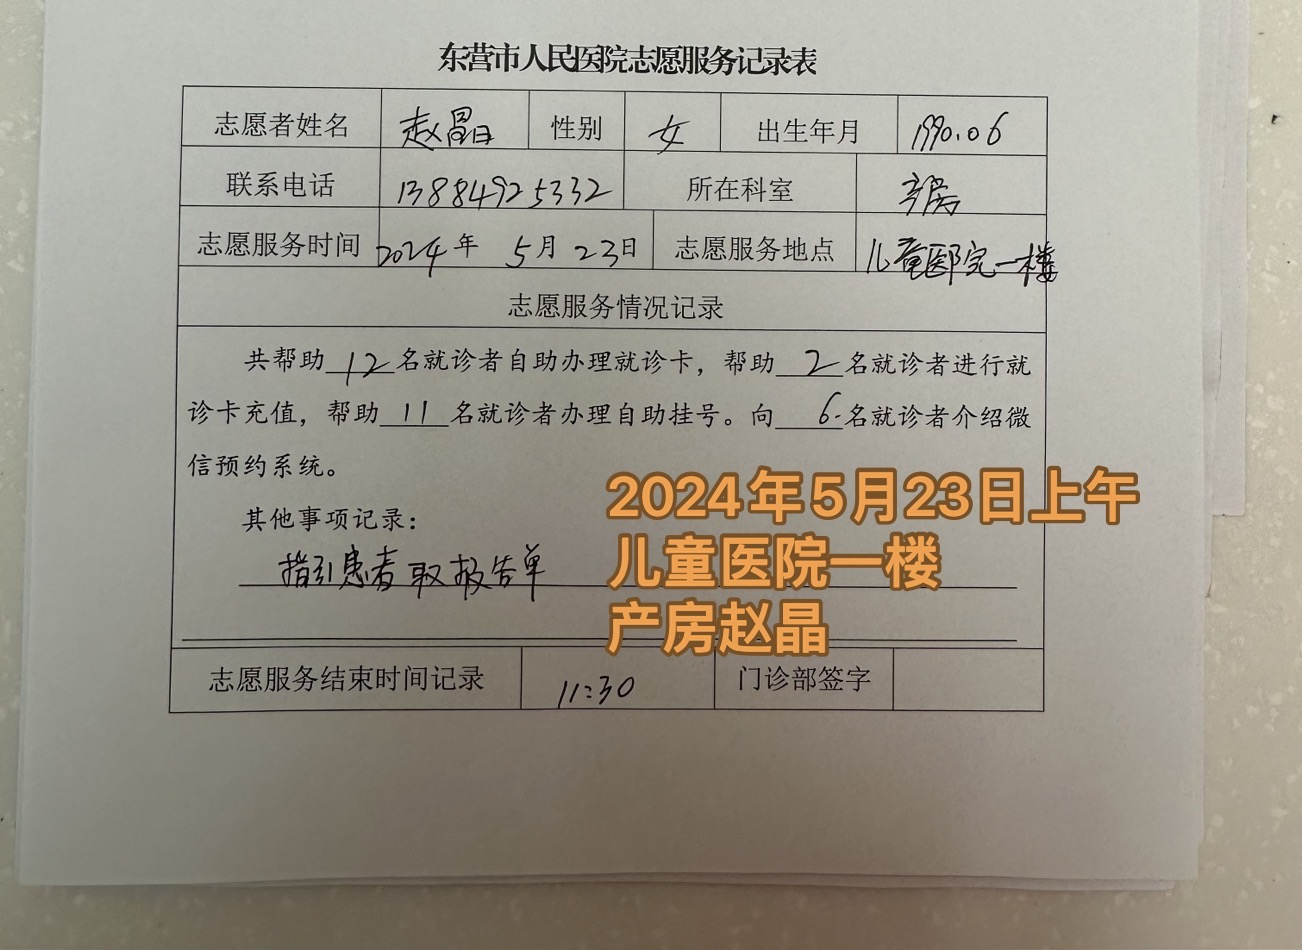 东营市人民医院志愿服务记录表
志愿者姓名 赵晶 性别 女 出生年月 1990.06
联系电话 13884925332 所在科室 产房
志愿服务时间 2024年 5月 23日 志愿服务地点 儿童医院一楼
志愿服务情况记录
共帮助 12 名就诊者自助办理就诊卡，帮助 2 名就诊者进行就
诊卡充值，帮助 11 名就诊者办理自助挂号。向 6. 名就诊者介绍微
信预约系统。
其他事项记录：
指引患者取报告单
2024年5月23日上午
儿童医院一楼
产房赵晶
志愿服务结束时间记录 11:30 门诊部签字